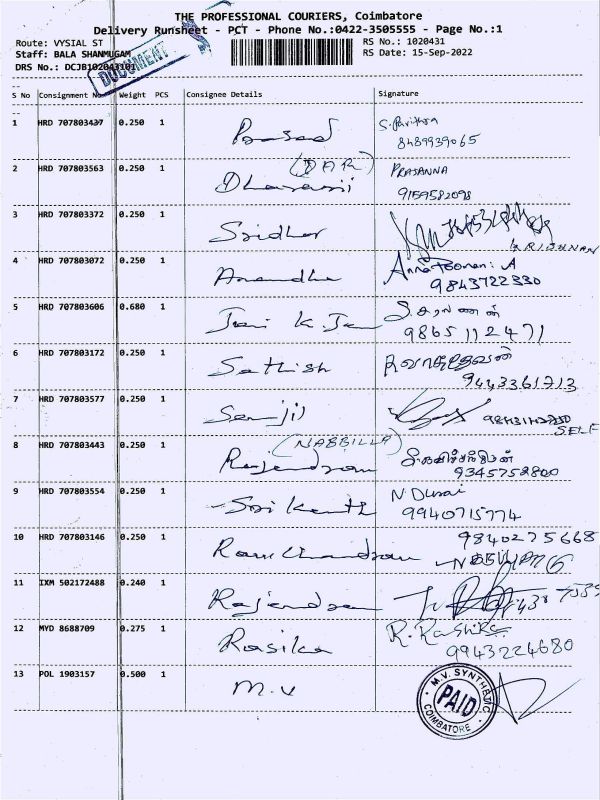 THE PROFESSIONAL COURIERS, Coimbatore
Delivery Runsheet - PCT - Phone No.:0422-3505555 - Page No.:1
Route: VYSIAL ST
RS No.: 1020431
Staff: BALA SHANMUGAM
RS Date: 15-Sep-2022
DRS No.: DCJB102043101
DOCUMENT
S No Consignment No Weight PCS Consignee Details Signature
1 HRD 707803437 0.250 1 Prasad S. Pavithra
8489939065
2 HRD 707803563 0.250 1 (DAR) Dharani PRASANNA
9159582098
3 HRD 707803372 0.250 1 Sridhar
4 HRD 707803072 0.250 1 Anandha
9843722330
5 HRD 707803606 0.680 1 Jai K. Jain S. சரவணன்
9865112471
6 HRD 707803172 0.250 1 Sathish
9443361713
7 HRD 707803577 0.250 1 Senjil
SELF
8 HRD 707803443 0.250 1 (NABBILLA) Rajendran
9345752800
9 HRD 707803554 0.250 1 Sri Kanth N Durai
9940715774
10 HRD 707803146 0.250 1 Ramchandran 9840275668
11 IXM 502172488 0.240 1 Rajendran
12 MYD 8688709 0.275 1 Rasika R. Rashika
9943224680
13 POL 1903157 0.500 1 M.V
M.V. SYNTHETIC
PAID
COIMBATORE